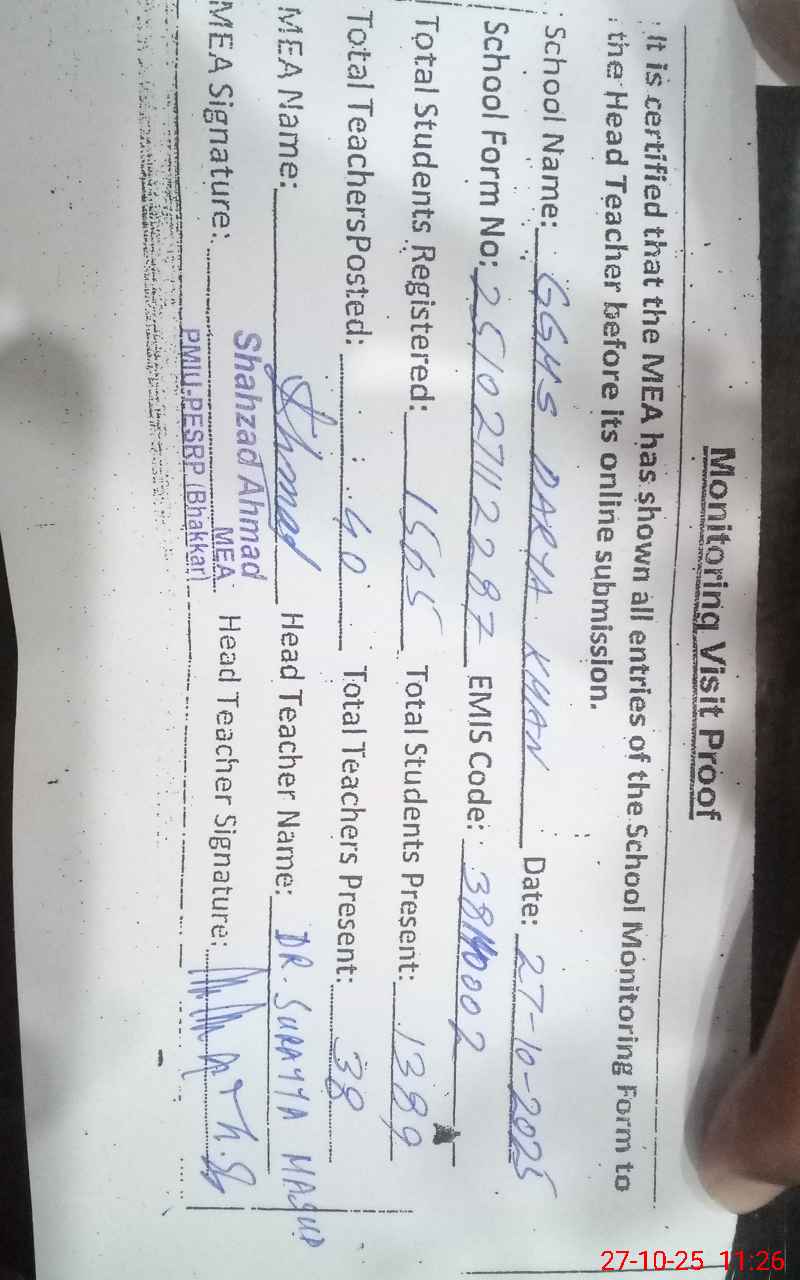 Monitoring Visit Proof
It is certified that the MEA has shown all entries of the School Monitoring Form to
the Head Teacher before its online submission.
School Name: GGHS DARYA KHAN Date: 27-10-2025
School Form No: 251027112287 EMIS Code: 38140002
Total Students Registered: 1565 Total Students Present: 1389
Total TeachersPosted: 40 Total Teachers Present: 38
MEA Name: Ahmad Head Teacher Name: DR. SURAYYA MASUD
MEA Signature: Shahzad Ahmad Head Teacher Signature:
MEA
PMIU-PESRP (Bhakkar)
27-10-25 11:26